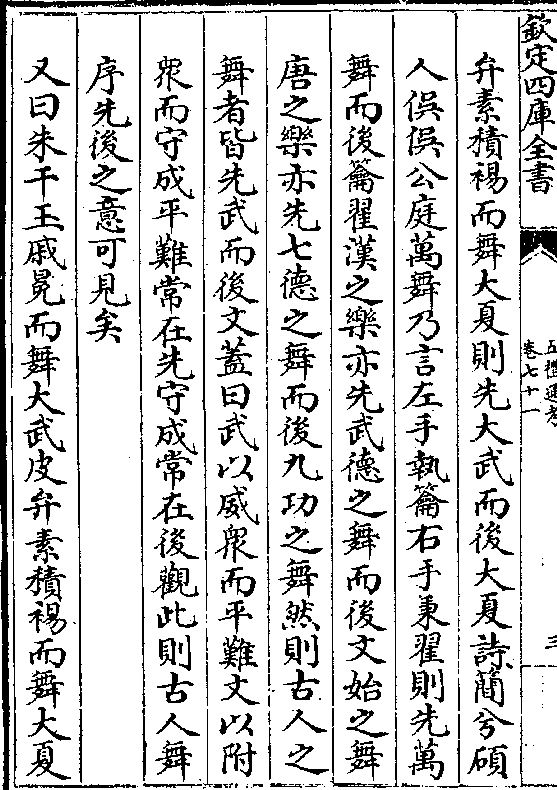 欽定四庫全書
五禮通考
卷七十一
三
弁素積裼而舞大夏則先大武而後大夏詩簡兮碩
人俁俁公庭萬舞乃言左手執籥右手秉翟則先萬
舞而後籥翟漢之樂亦先武德之舞而後文始之舞
唐之樂亦先七德之舞而後九功之舞然則古人之
舞者皆先武而後文蓋曰武以威衆而平難文以附
衆而守成平難常在先守成常在後觀此則古人舞
序先後之意可見矣
又曰朱干玉戚冕而舞大武皮弁素積裼而舞大夏